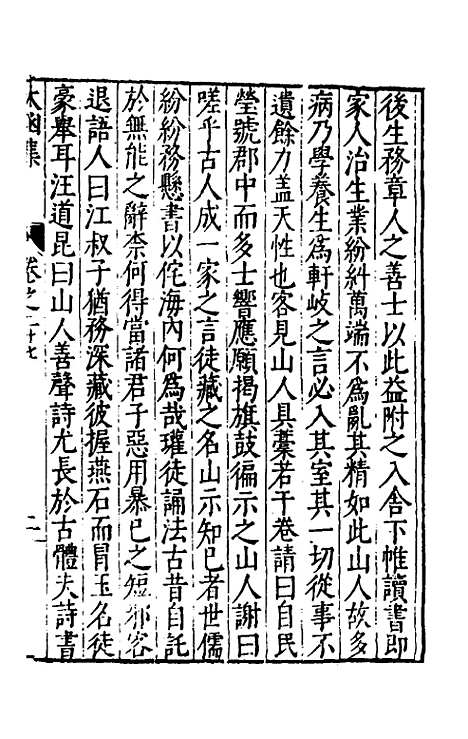 後生務章人之善士以此益附之入舍下帷讀書即
家人治生業紛糾萬端不爲亂其精如此山人故多
病乃學養生爲軒岐之言必入其室其一切從事不
遺餘力盖天性也客見山人具藁若干卷請曰自民
瑩號郡中而多士響應願揭旗鼓徧示之山人謝曰
嗟乎古人成一家之言徒藏之名山示知已者世儒
紛紛務懸書以侂海內何爲哉瓘徒誦法古昔自託
於無能之辭柰何得當諸君子惡用暴已之短邪客
退語人曰江叔子猶務深藏彼握燕石而冐玉名徒
豪舉耳汪道昆曰山人善聲詩尤長於古體夫詩書
太函集
卷之二十七
二